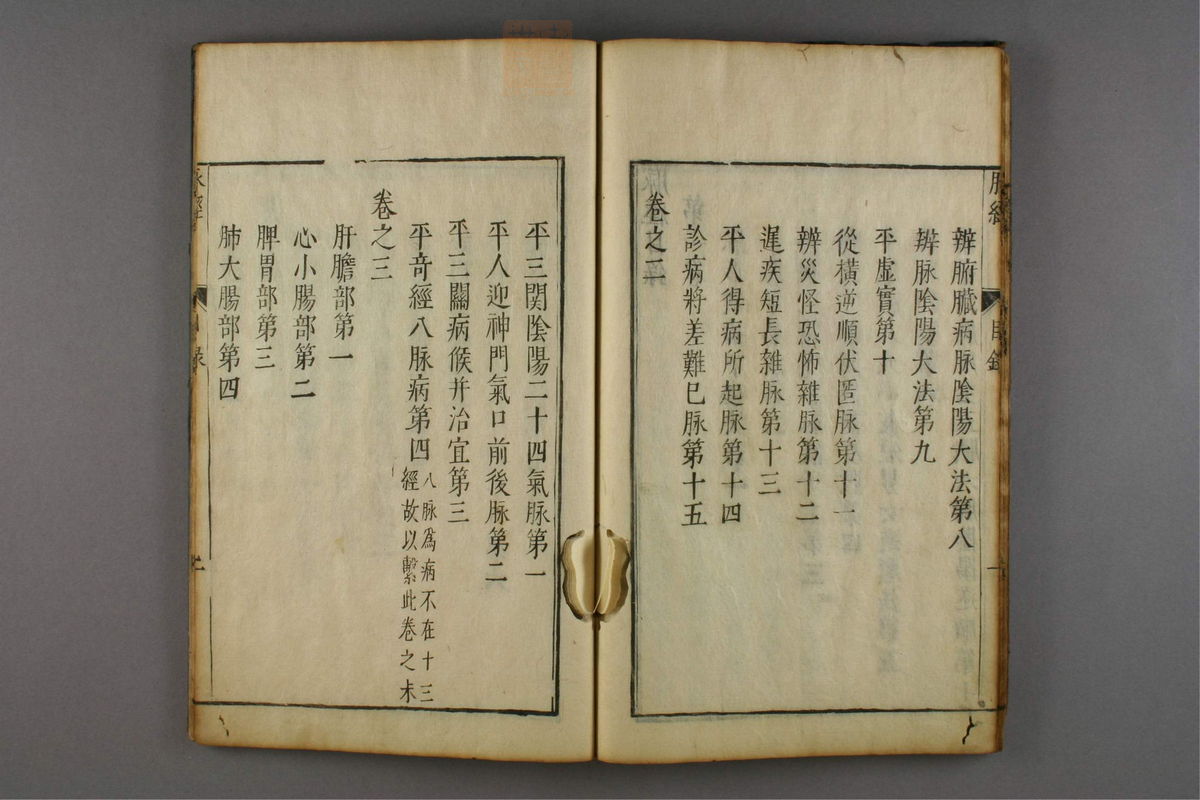 脈經
目錄
辨腑臟病脉陰陽大法第八
辨脉陰陽大法第九
平虛實第十
從橫逆順伏匿脉第十一
辨災怪恐怖雜脉第十二
遲疾短長雜脉第十三
平人得病所起脉第十四
診病將差難已脉第十五
卷之二
平三関陰陽二十四氣脉第一
平人迎神門氣口前後脉第二
平三關病候并治宜第三
平奇經八脉病第四
八脉為病不在十三
經故以繫此卷之末
卷之三
肝膽部第一
心小腸部第二
脾胃部第三
肺大腸部第四